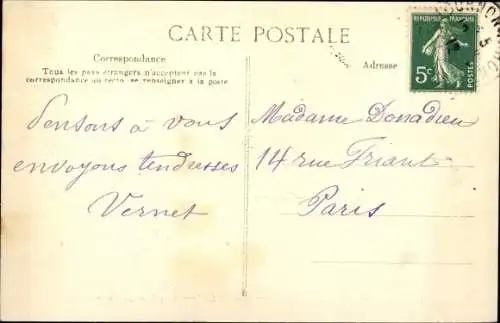 CARTE POSTALE
Correspondance
Tous les pays étrangers n'acceptent pas la
correspondance au recto, se renseigner à la poste
Adresse
RÉPUBLIQUE FRANÇAISE
5c
POSTES
Pensons à vous
envoyons tendresses
Vernet
Madame Donadieu
14 rue Friant
Paris